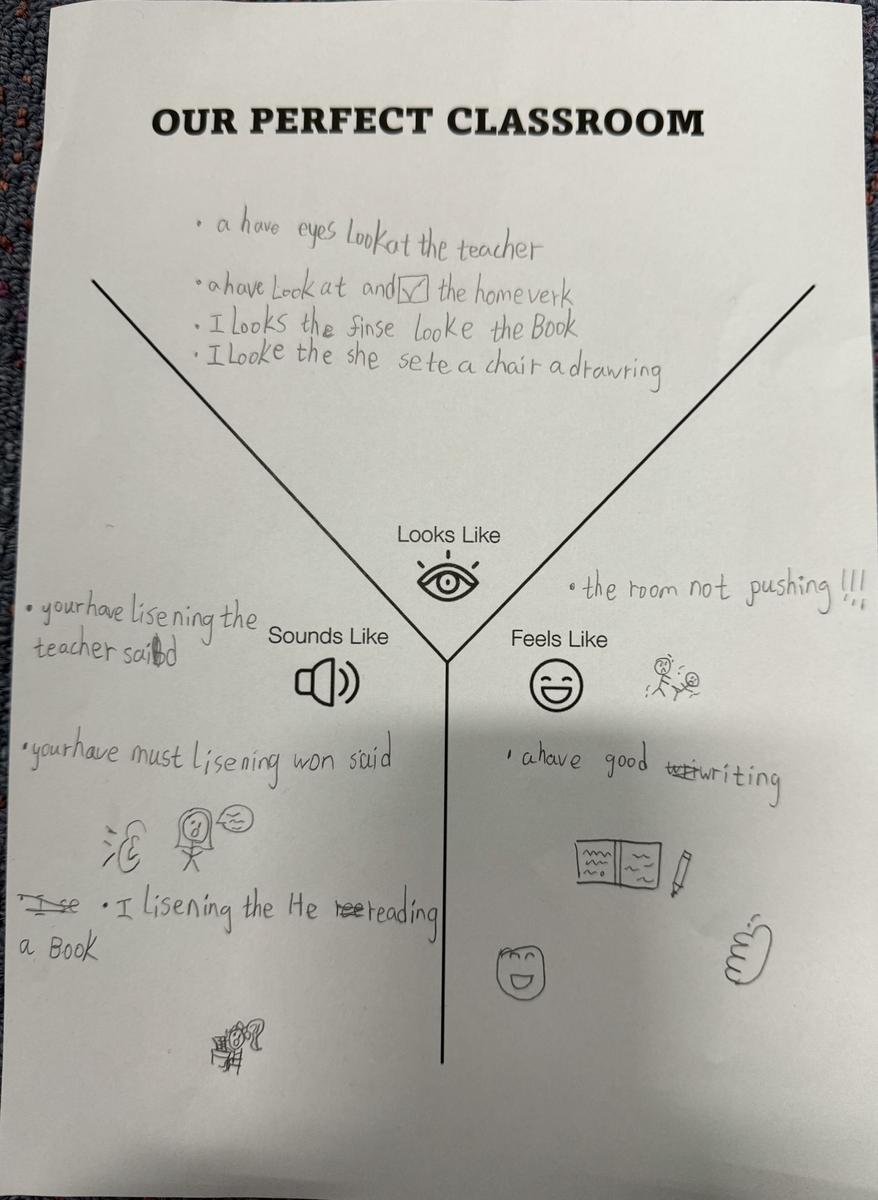 OUR PERFECT CLASSROOM
• a have eyes Lookat the teacher
• ahave Look at and ☑ the homeverk
• I Looks the finse Looke the Book
• I Looke the she sete a chair a drawring
Looks Like
• yourhave lisening the
teacher said
Sounds Like
• yourhave must lisening won said
• I lisening the He reading
a Book
• the room not pushing !!!
Feels Like
• ahave good writing